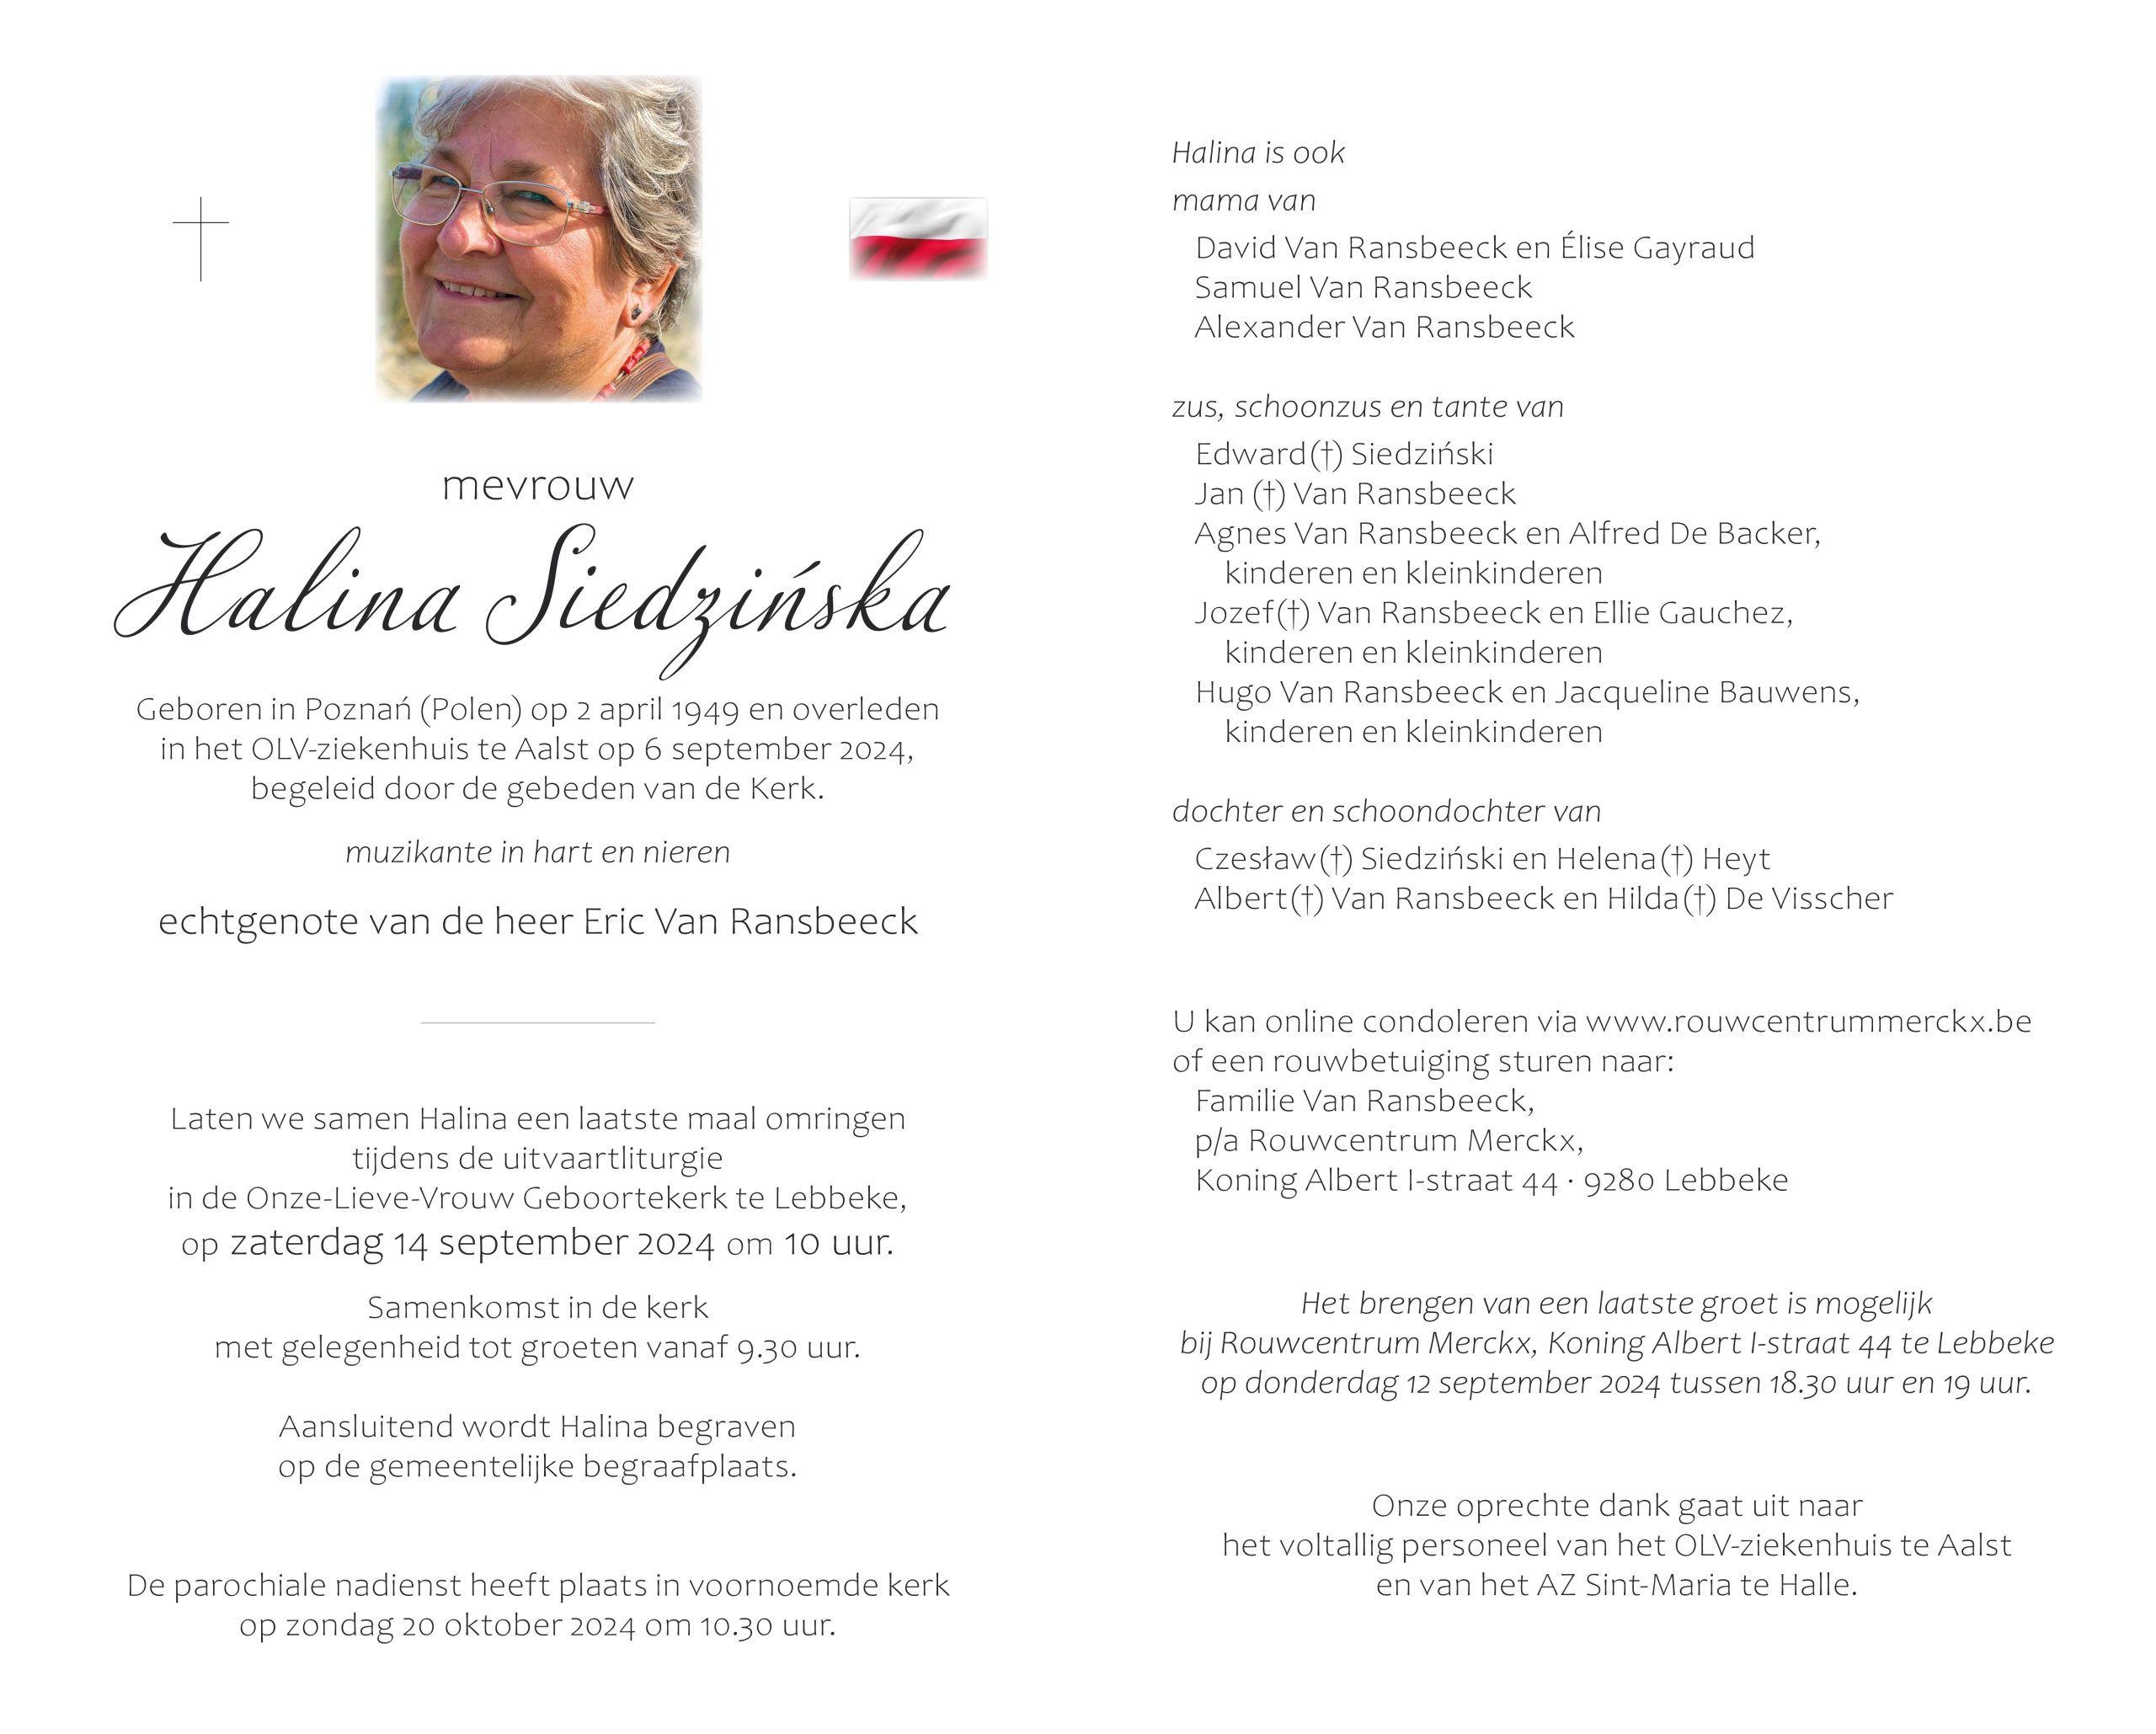 mevrouw
Halina Siedzińska
Geboren in Poznań (Polen) op 2 april 1949 en overleden
in het OLV-ziekenhuis te Aalst op 6 september 2024,
begeleid door de gebeden van de Kerk.
muzikante in hart en nieren
echtgenote van de heer Eric Van Ransbeeck
Laten we samen Halina een laatste maal omringen
tijdens de uitvaartliturgie
in de Onze-Lieve-Vrouw Geboortekerk te Lebbeke,
op zaterdag 14 september 2024 om 10 uur.
Samenkomst in de kerk
met gelegenheid tot groeten vanaf 9.30 uur.
Aansluitend wordt Halina begraven
op de gemeentelijke begraafplaats.
De parochiale nadienst heeft plaats in voornoemde kerk
op zondag 20 oktober 2024 om 10.30 uur.
Halina is ook
mama van
David Van Ransbeeck en Élise Gayraud
Samuel Van Ransbeeck
Alexander Van Ransbeeck
zus, schoonzus en tante van
Edward(†) Siedziński
Jan (†) Van Ransbeeck
Agnes Van Ransbeeck en Alfred De Backer,
kinderen en kleinkinderen
Jozef(†) Van Ransbeeck en Ellie Gauchez,
kinderen en kleinkinderen
Hugo Van Ransbeeck en Jacqueline Bauwens,
kinderen en kleinkinderen
dochter en schoondochter van
Czesław(†) Siedziński en Helena(†) Heyt
Albert(†) Van Ransbeeck en Hilda(†) De Visscher
U kan online condoleren via www.rouwcentrummerckx.be
of een rouwbetuiging sturen naar:
Familie Van Ransbeeck,
p/a Rouwcentrum Merckx,
Koning Albert I-straat 44 · 9280 Lebbeke
Het brengen van een laatste groet is mogelijk
bij Rouwcentrum Merckx, Koning Albert I-straat 44 te Lebbeke
op donderdag 12 september 2024 tussen 18.30 uur en 19 uur.
Onze oprechte dank gaat uit naar
het voltallig personeel van het OLV-ziekenhuis te Aalst
en van het AZ Sint-Maria te Halle.